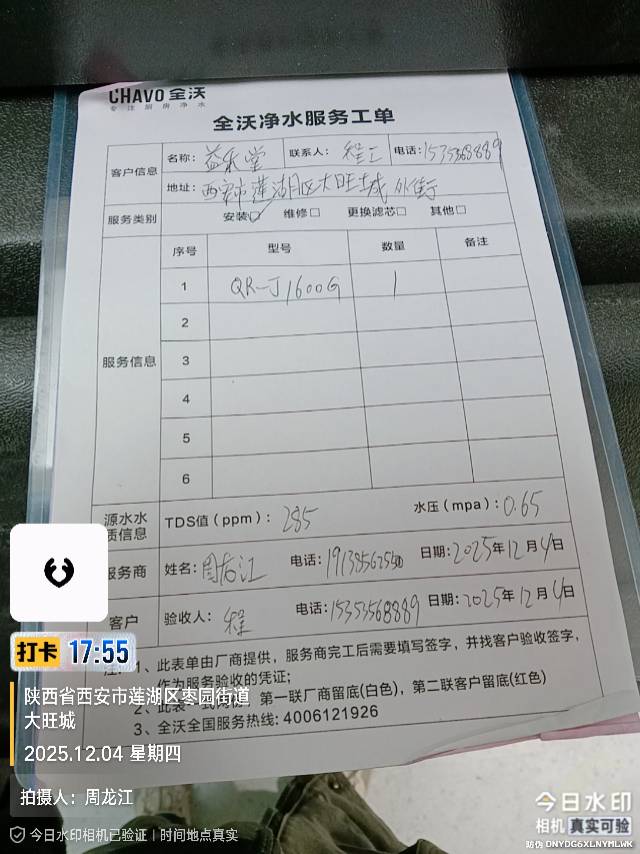 CHAVO 全沃
专注厨房净水
全沃净水服务工单
客户信息 名称：益禾堂 联系人：程工 电话：15353568889
地址：西安市莲湖区大旺城外街
服务类别 安装☑ 维修□ 更换滤芯□ 其他□
服务信息 序号 型号 数量 备注
1 QR-J1600G 1
2
3
4
5
6
源水水质信息 TDS值（ppm）：285 水压（mpa）：0.65
服务商 姓名：周龙江 电话： 日期：2025年12月4日
客户 验收人：程 电话：15353568889 日期：2025年12月4日
注：1、此表单由厂商提供，服务商完工后需要填写签字，并找客户验收签字，
作为服务验收的凭证；
2、此表一式两联，第一联厂商留底(白色)，第二联客户留底(红色)
3、全沃全国服务热线: 4006121926
打卡 17:55
陕西省西安市莲湖区枣园街道
大旺城
2025.12.04 星期四
拍摄人：周龙江
今日水印相机已验证 | 时间地点真实
今日水印
相机 真实可验
防伪 DNYDG6XLNYMLWK